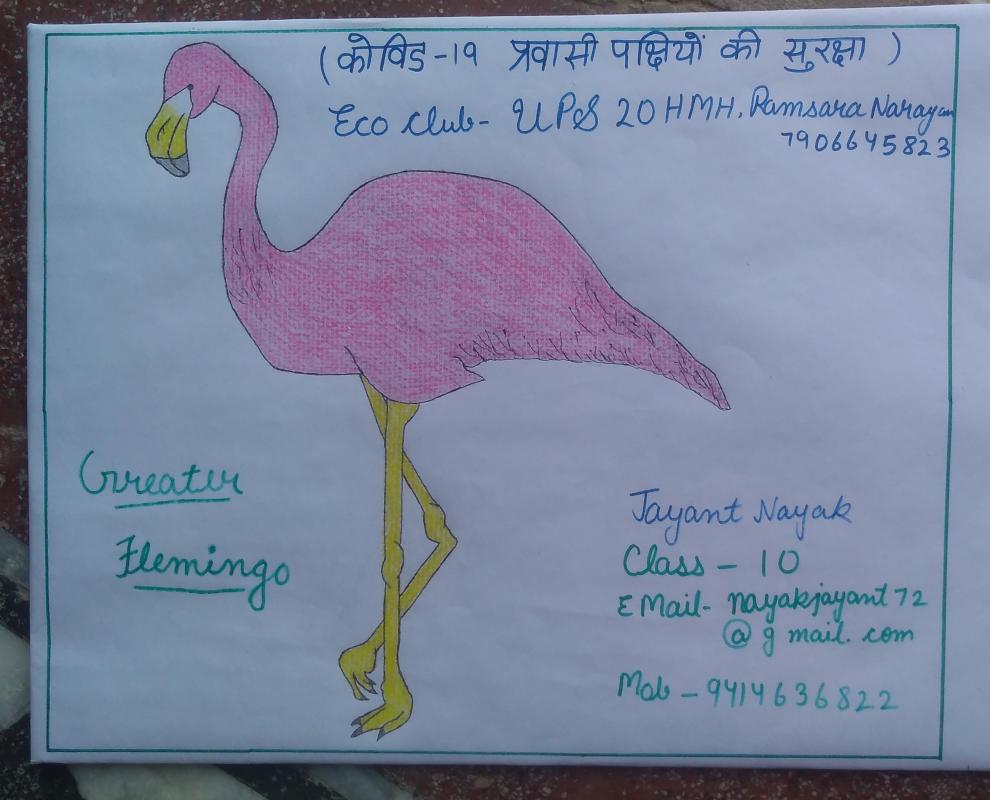 (कोविड-19 प्रवासी पक्षियों की सुरक्षा )
Eco club- UPS 20 HMH, Ramsara Narayan
7906645823
Greater
Flemingo
Jayant Nayak
Class - 10
E Mail- nayakjayant72
@gmail.com
Mob - 9414636822